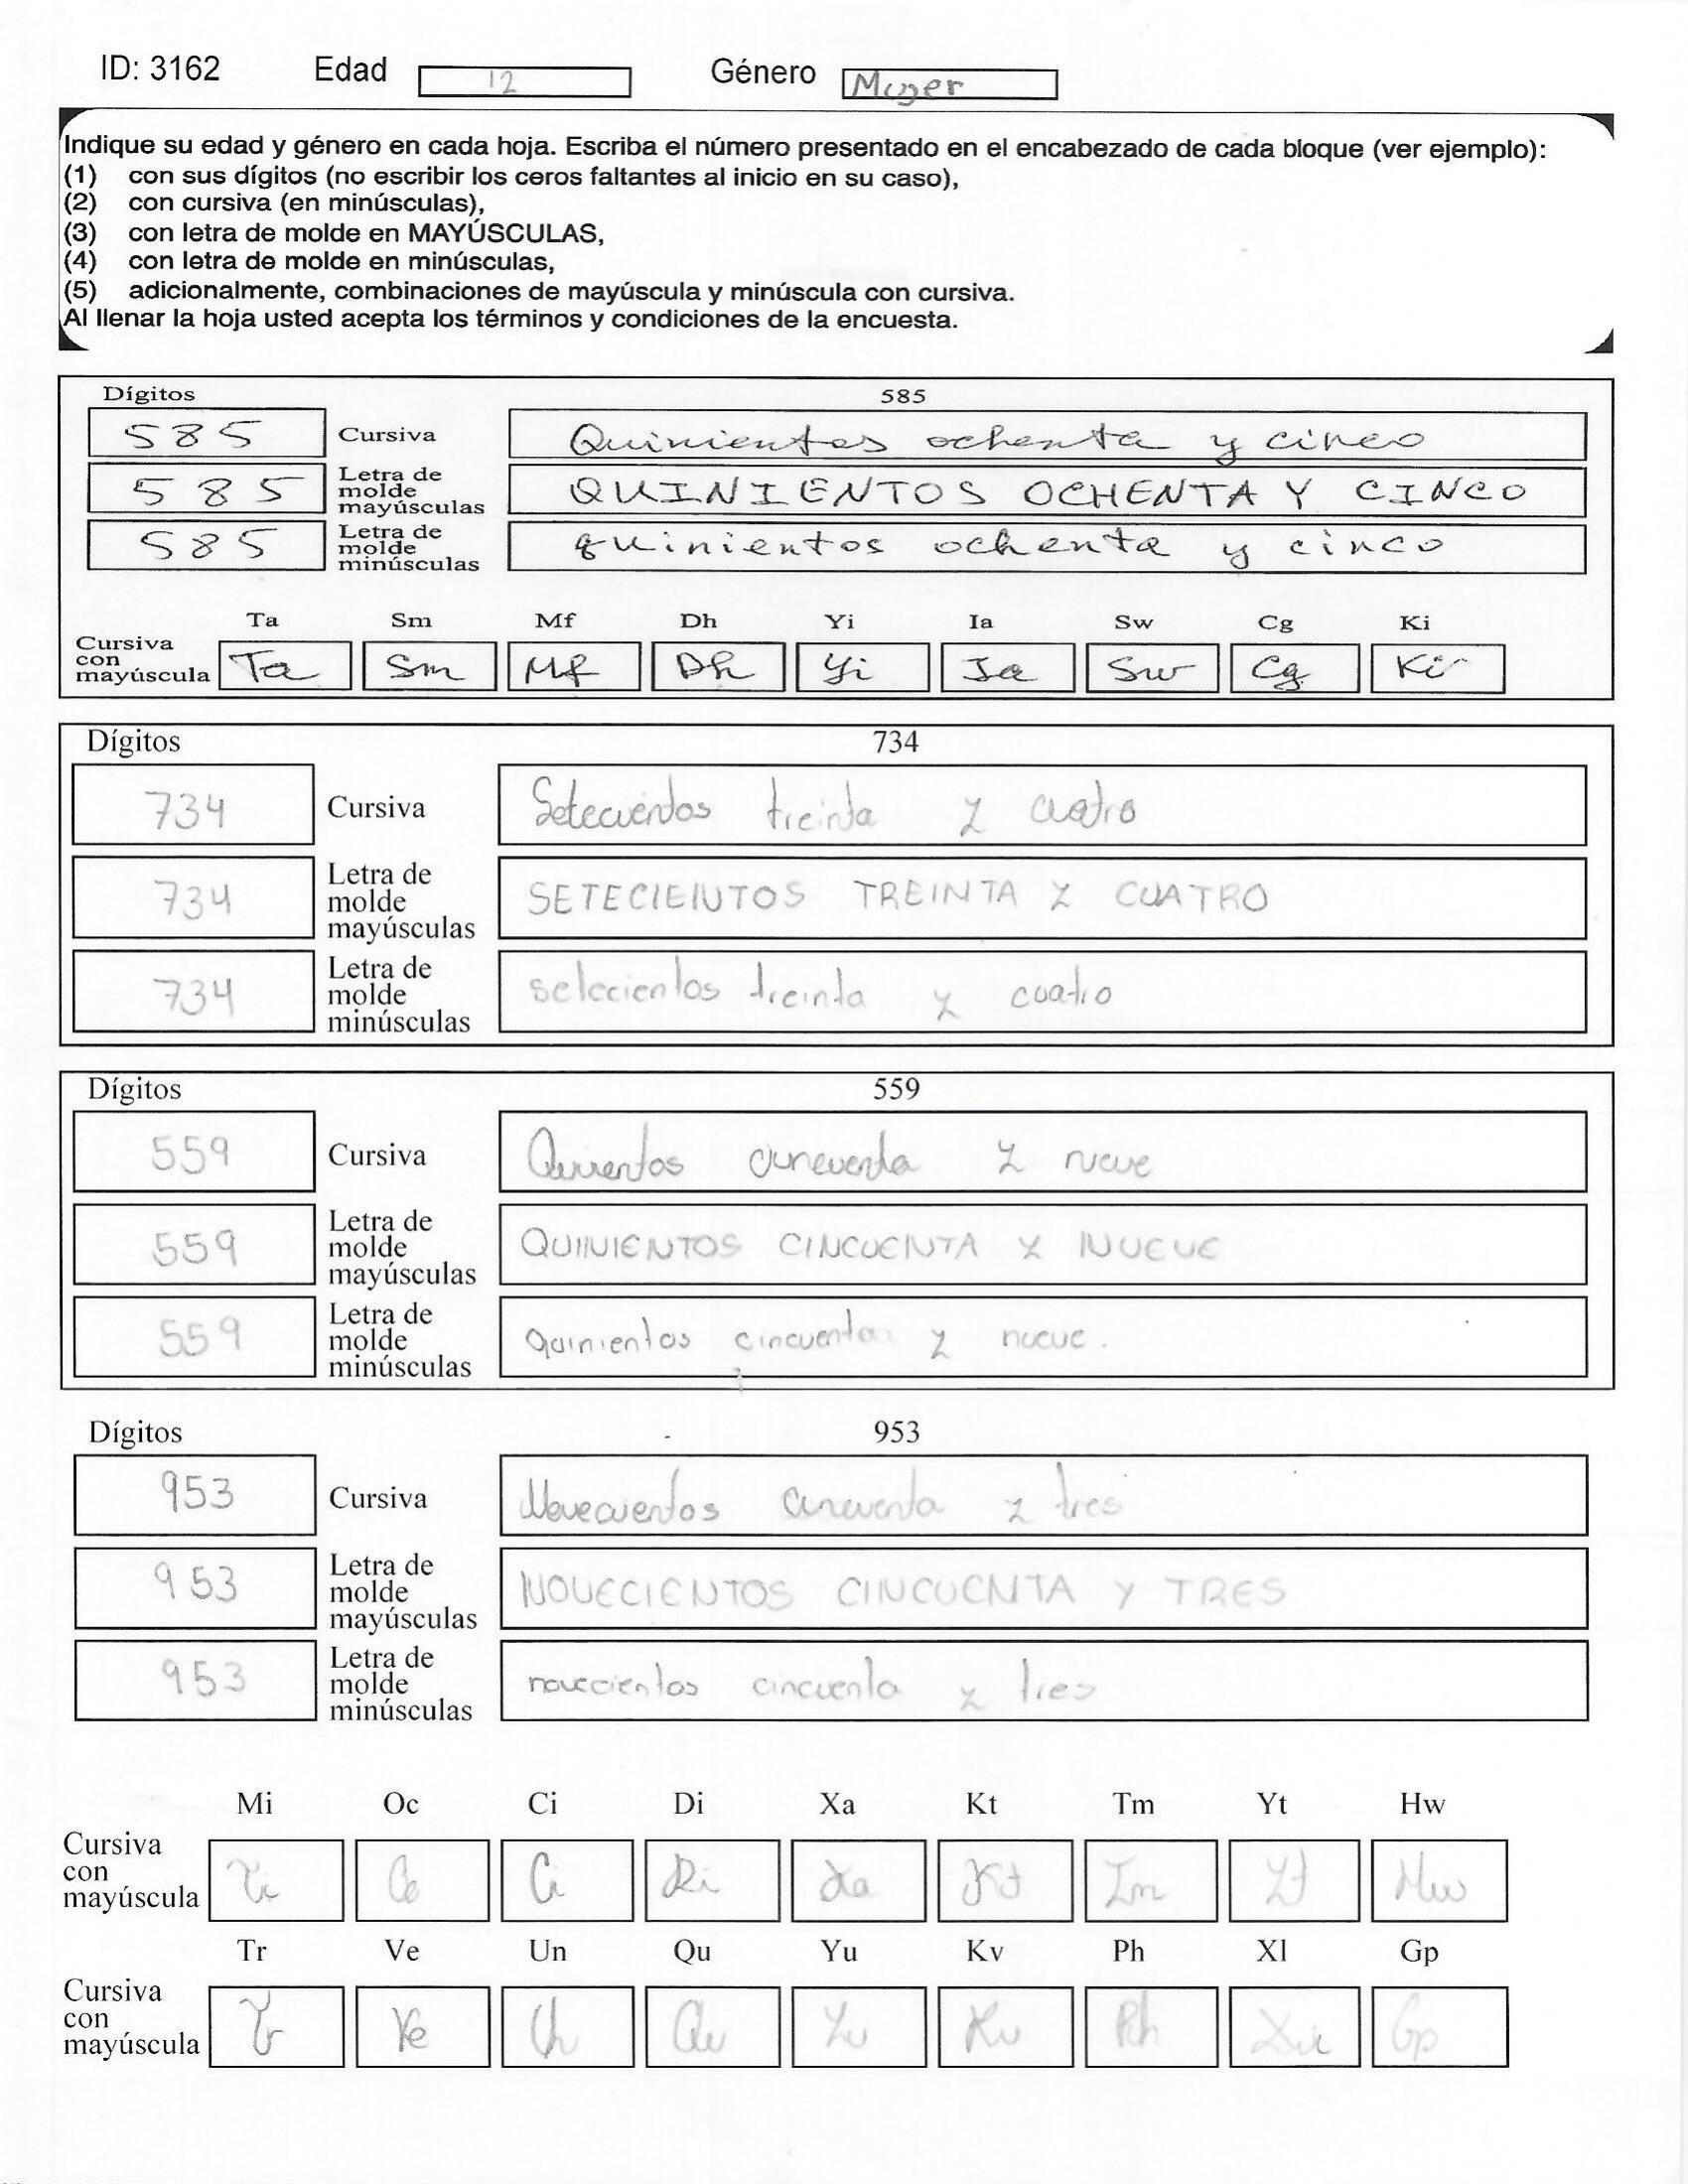 ID: 3162 Edad 12 Género Mujer
Indique su edad y género en cada hoja. Escriba el número presentado en el encabezado de cada bloque (ver ejemplo):
(1) con sus dígitos (no escribir los ceros faltantes al inicio en su caso),
(2) con cursiva (en minúsculas),
(3) con letra de molde en MAYÚSCULAS,
(4) con letra de molde en minúsculas,
(5) adicionalmente, combinaciones de mayúscula y minúscula con cursiva.
Al llenar la hoja usted acepta los términos y condiciones de la encuesta.
Dígitos 585
585 Cursiva Quinientos ochenta y cinco
585 Letra de molde mayúsculas QUINIENTOS OCHENTA Y CINCO
585 Letra de molde minúsculas quinientos ochenta y cinco
Ta Sm Mf Dh Yi Ia Sw Cg Ki
Cursiva con mayúscula Ta Sm Mf Dh Yi Ia Sw Cg Ki
Dígitos 734
734 Cursiva Setecientos treinta y cuatro
734 Letra de molde mayúsculas SETECIENTOS TREINTA Y CUATRO
734 Letra de molde minúsculas setecientos treinta y cuatro
Dígitos 559
559 Cursiva Quinientos cincuenta y nueve
559 Letra de molde mayúsculas QUINIENTOS CINCUENTA Y NUEVE
559 Letra de molde minúsculas quinientos cincuenta y nueve.
Dígitos 953
953 Cursiva Novecientos cincuenta y tres
953 Letra de molde mayúsculas NOVECIENTOS CINCUENTA Y TRES
953 Letra de molde minúsculas novecientos cincuenta y tres
Mi Oc Ci Di Xa Kt Tm Yt Hw
Cursiva con mayúscula Ci Di Xa Kt Tm Yt Hw
Tr Ve Un Qu Yu Kv Ph Xl Gp
Cursiva con mayúscula Tr Ve Un Qu Yu Kv Ph Gp